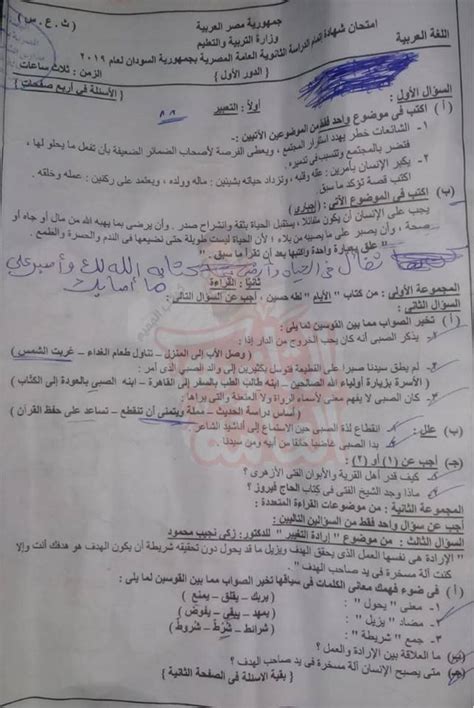 جمهورية مصر العربية
( ث . ع . س )
وزارة التربية والتعليم
اللغة العربية
امتحان شهادة إتمام الدراسة الثانوية العامة المصرية بجمهورية السودان لعام ٢٠١٩
الزمن : ثلاث ساعات
( الدور الأول )
( الأسئلة في أربع صفحات )
السؤال الأول :
أولاً : التعبير
( أ ) اكتب في موضوع واحد فقط من الموضوعين الآتيين :
١- الشائعات خطر يهدد استقرار المجتمع ، ويعطى الفرصة لأصحاب الضمائر الضعيفة بأن تفعل ما يحلو لها ،
فتضر بالمجتمع وتتسبب في تدميره .
٢- يكبر الإنسان بأمرين : عقله وقلبه ، وتزداد حياته بشيئين : ماله وولده ، ويعتمد على ركنين : عمله وخلقه .
اكتب قصة تؤكد ما سبق
(ب) اكتب في الموضوع الآتي : (إجباري)
يجب على الإنسان أن يكون متفائلا ، يستقبل الحياة بثقة وانشراح صدر . وأن يرضى بما يهبه الله من مال أو جاه أو
صحة ، وأن يصبر على ما يصيبه من بلاء ؛ لأن الحياة ليست طويلة حتى نضيعها في الندم والحسرة والطمع .
" علق بعبارة واحدة واكتبها بعد أن تقرأ ما سبق "
تفائل في الحياة وارضى بما كتبه الله لك واصبر على
ما أصابك
ثانياً : القراءة
المجموعة الأولى : من كتاب " الأيام " لطه حسين ، أجب عن السؤال التالي :
السؤال الثاني :
( أ ) تخير الصواب مما بين القوسين لما يلى :
١- يذكر الصبى أنه كان يحب الخروج من الدار إذا :
( وصل الأب إلى المنزل – تناول طعام الغداء – غربت الشمس )
٢- لم يطق سيدنا صبرا على القطيعة فتوسل بكثيرين إلى والد الصبى الذى أمر :
( الأسرة بزيارة أولياء الله الصالحين – ابنه طالب الطب بالسفر إلى القاهرة – ابنه الصبى بالعودة إلى الكتاب )
٣- كان الصبى لا يفهم معنى لأسماء الرواة والعنعنة والتى يراها :
( أساس دراسة الحديث – مملة ويتمنى أن تنقطع – تساعد على حفظ القرآن )
(ب) علل :
١- انقطاع لذة الصبى حين الاستماع إلى أناشيد الشاعر
٢- بدا الصبى غاضبا حانقا من أبيه ومن سيدنا
(جـ) أجب عن (١) أو (٢) :
١- كيف قدر أهل القرية والأبوان الفتى الأزهرى ؟
٢- ماذا وجد الشيخ الفتى فى كتاب الحاج فيروز ؟
المجموعة الثانية : من موضوعات القراءة المتعددة :
أجب عن سؤال واحد فقط من السؤالين التاليين :
السؤال الثالث : من موضوع " إرادة التغيير " للدكتور: زكى نجيب محمود
" الإرادة هى نفسها العمل الذى يحقق الهدف ويزيل ما قد يحول دون تحقيقه شريطة أن يكون الهدف هو هدفك أنت وإلا
كنت آلة مسخرة فى يد صاحب الهدف "
( أ ) فى ضوء فهمك معانى الكلمات فى سياقها تخير الصواب مما بين القوسين لما يلى :
١- معنى " يحول " :
( يربك – يقلق – يمنع )
٢- مضاد " يزيل " :
( يمهد – يبقى – يفوض )
٣- جمع " شريطة " :
( شرائط – شُرُط – شروط )
(ب) ما العلاقة بين الإرادة والعمل ؟
(جـ) متى يصبح الإنسان آلة مسخرة فى يد صاحب الهدف ؟
( بقية الاسئلة فى الصفحة الثانية )